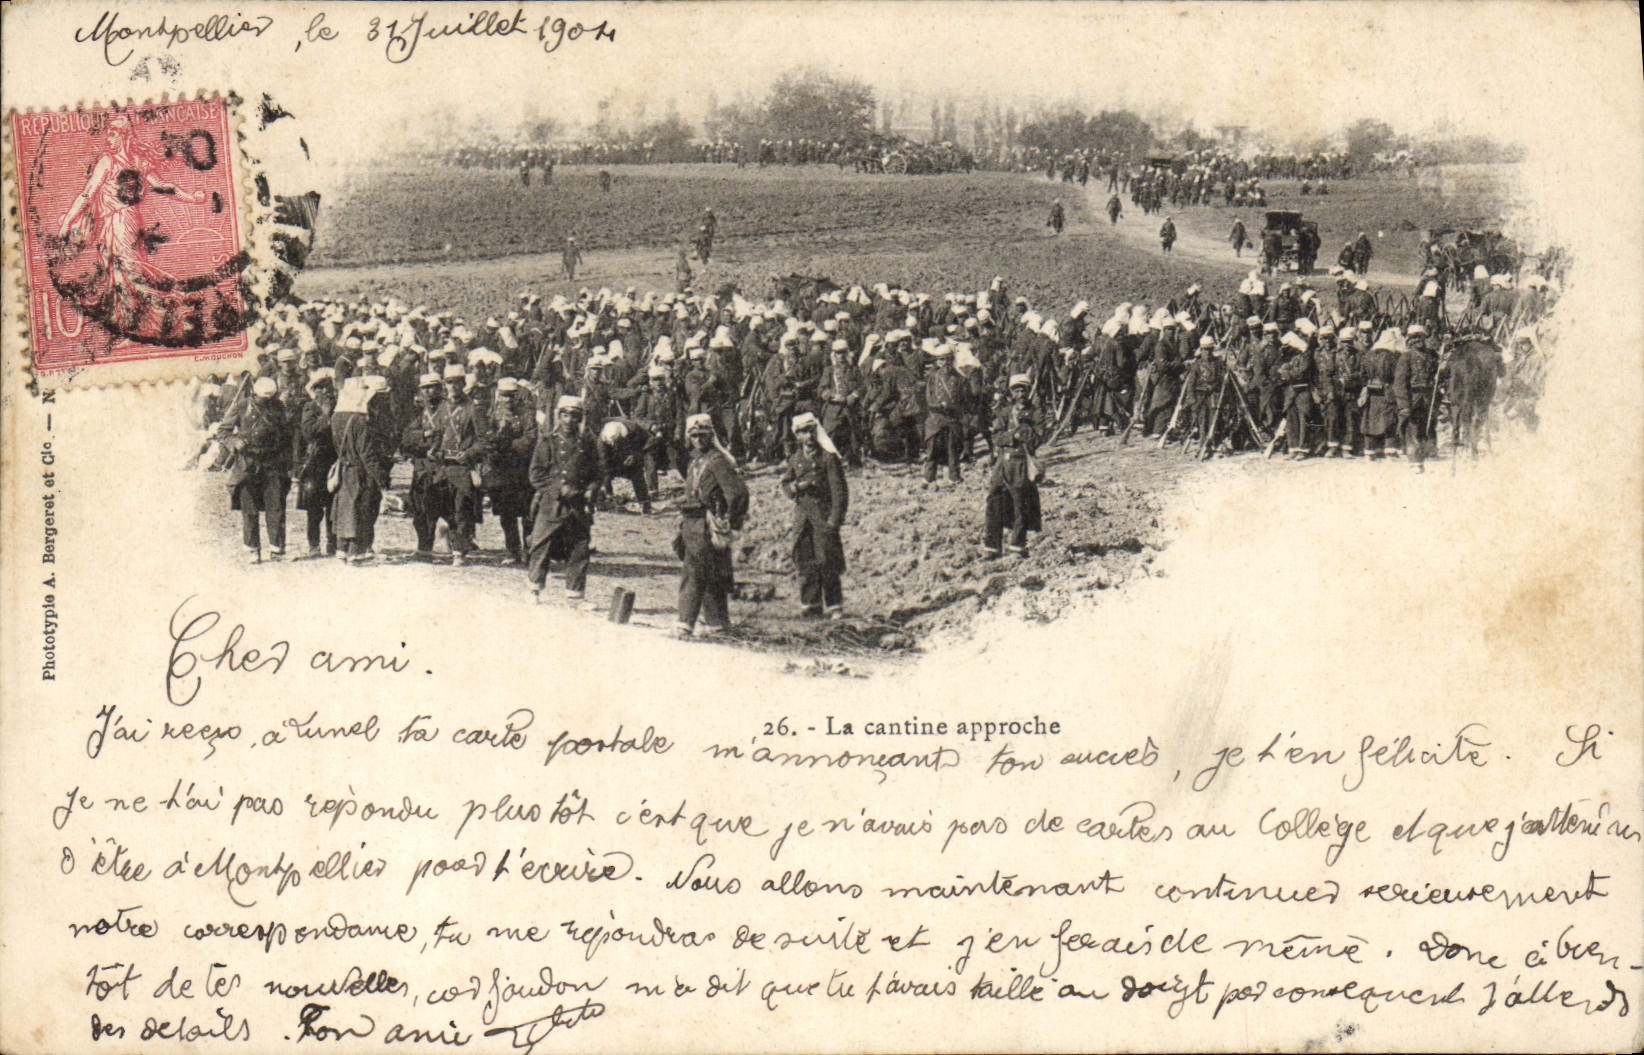 Montpellier, le 31 Juillet 1904
REPUBLIQUE FRANÇAISE
10
E. MOUCHON
Phototypie A. Bergeret et Cie. — N
26. - La cantine approche
Cher ami.
J'ai reçu, à Lunel ta carte postale m'annonçant ton succès, je t'en félicite. Si
je ne t'ai pas répondu plus tôt c'est que je n'avais pas de cartes au Collège et que j'attendais
d'être à Montpellier pour t'écrire. Nous allons maintenant continuer serieusement
notre correspondance, tu me répondras de suite et j'en ferais de même. Donc à bien-
tôt de tes nouvelles, car Jourdon m'a dit que tu t'avais taillé au doigt par consequent J'attends
des details. Ton ami